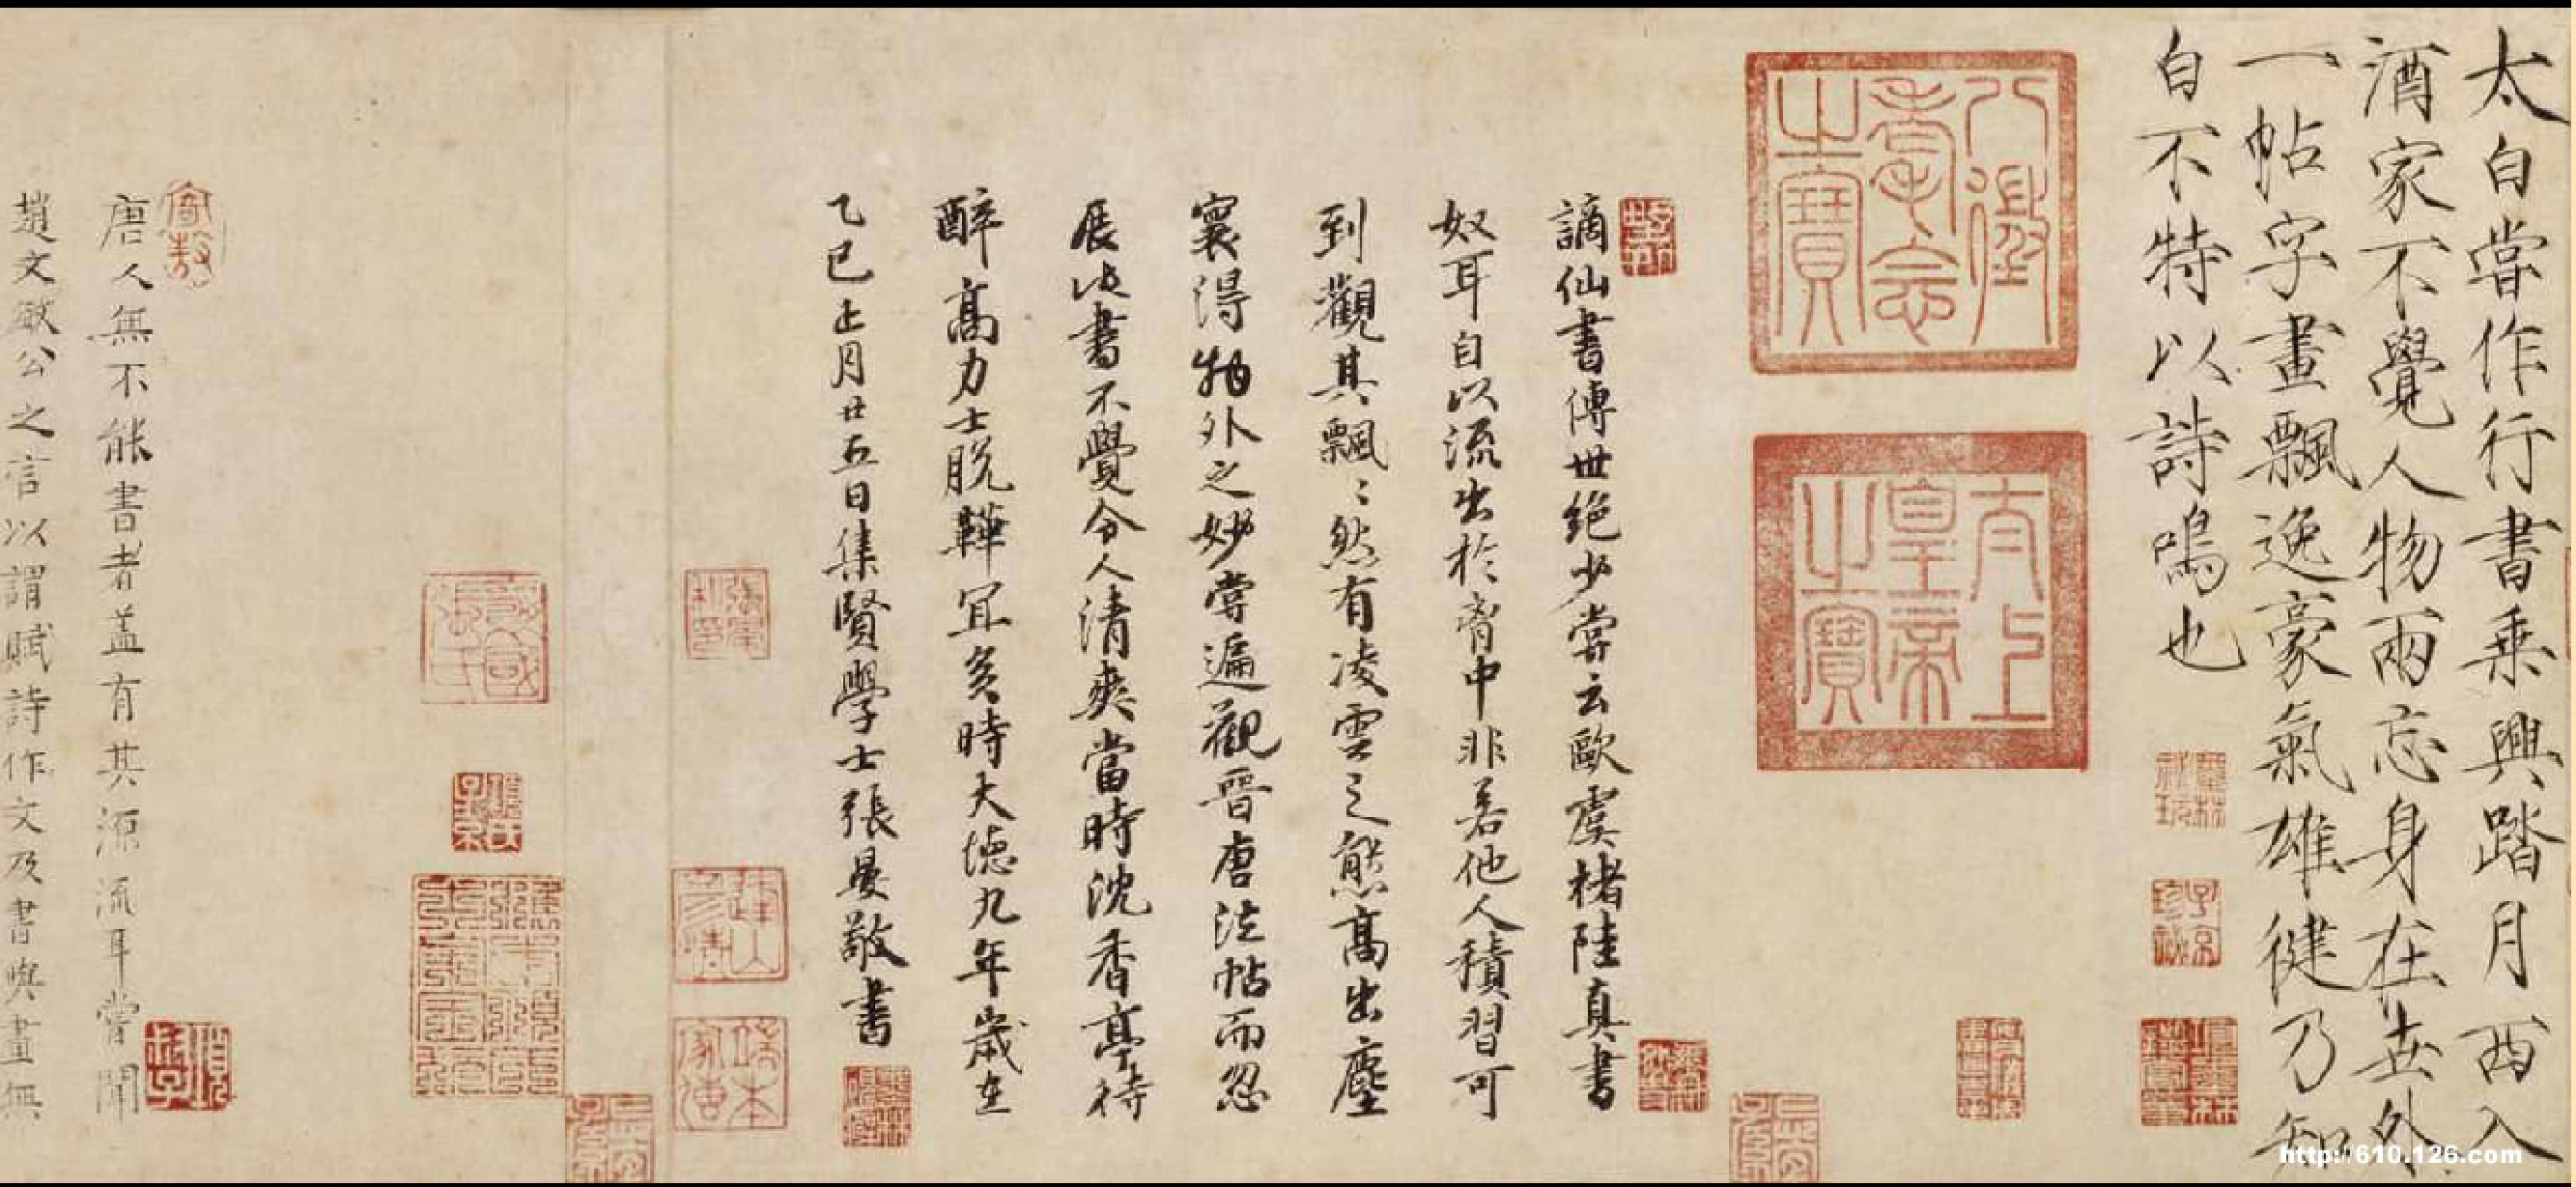 太白嘗作行書乘興踏月西入
酒家不覺人物兩忘身在世外
一帖字畫飄逸豪氣雄健乃知
自不特以詩鳴也
八徵耄念之寶
太上皇帝之寶
謫仙書傳世絕少嘗云歐虞褚陸真書
奴耳自以流出於胷中非若他人積習可
到觀其飄〻然有凌雲之態高出塵
寰得物外之妙嘗遍觀晉唐法帖而忽
展此書不覺令人清爽當時沈香亭待
醉高力士脫鞾冝矣時大德九年歲在
乙巳正月廿五日集賢學士張晏敬書
唐人無不能書者盖有其源流耳嘗聞
趙文敏公之言以謂賦詩作文及書與畫無
http://610.126.com